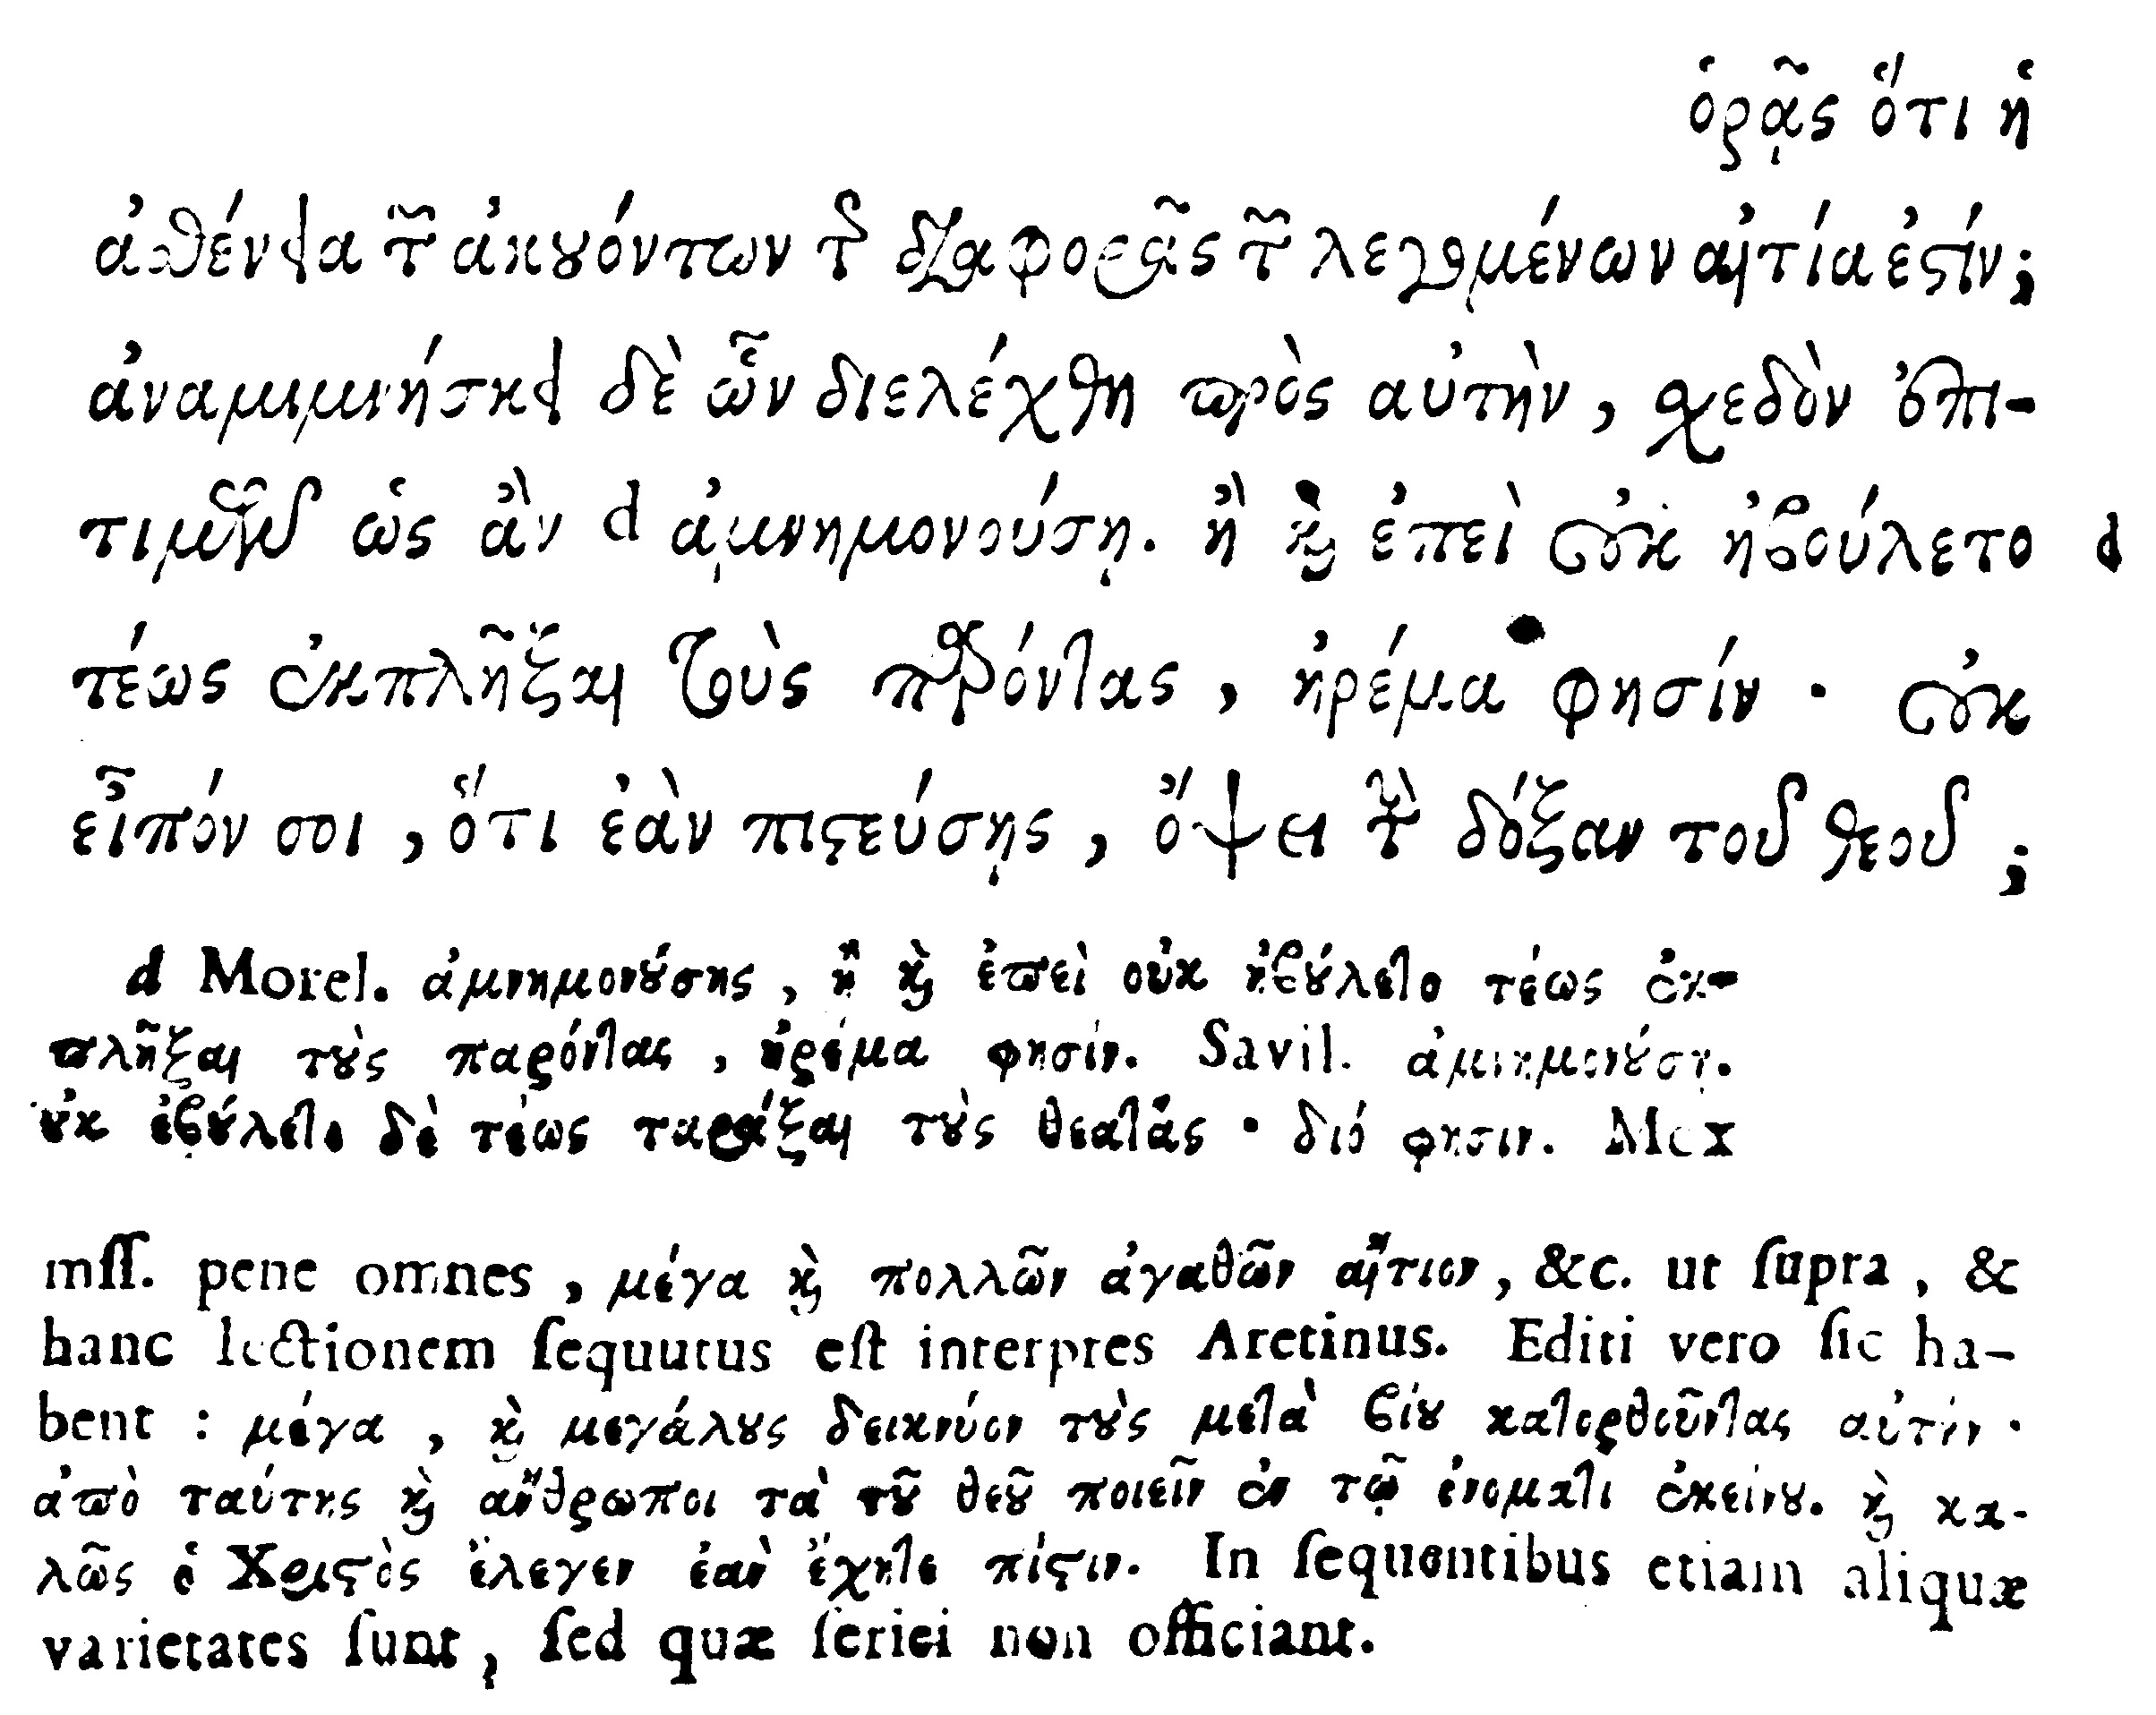 ὁρᾷς ὅτι ἡ
ἀσθένεια τῶν ἀκουόντων τῆς διαφορᾶς τῶν λεγομένων αἰτία ἐστίν;
ἀναμιμνήσκει δὲ ὧν διελέχθη πρὸς αὐτὴν, σχεδὸν ἐπι-
τιμῶν ὡς ἂν d ἀμνημονούσῃ. ἢ καὶ ἐπεὶ οὐκ ἠβούλετο d
τέως ἐκπλῆξαι τοὺς παρόντας, ἠρέμα φησίν· οὐκ
εἶπόν σοι, ὅτι ἐὰν πιστεύσῃς, ὄψει τὴν δόξαν τοῦ θεοῦ;
d Morel. ἀμνημονούσης, ἢ καὶ ἐπεὶ οὐκ ἠβούλετο τέως ἐκ-
πλῆξαι τοὺς παρόντας, ἠρέμα φησίν. Savil. ἀμνημονούσῃ.
οὐκ ἐβούλετο δὲ τέως ταράξαι τοὺς θεατάς· διό φησιν. Mox
mss. pene omnes, μέγα καὶ πολλῶν ἀγαθῶν αἴτιον, &c. ut supra, &
hanc lectionem sequutus est interpres Aretinus. Editi vero sic ha-
bent: μέγα, καὶ μεγάλους δεικνύον τοὺς μετὰ βίου κατορθοῦντας αὐτήν·
ἀπὸ ταύτης καὶ ἄνθρωποι τὰ τοῦ θεοῦ ποιεῖν ἐν τῷ ὀνόματι ἐκείνου. καὶ κα-
λῶς ὁ Χριστὸς ἔλεγεν ἐὰν ἔχητε πίστιν. In sequentibus etiam aliquæ
varietates sunt, sed quæ seriei non officiant.